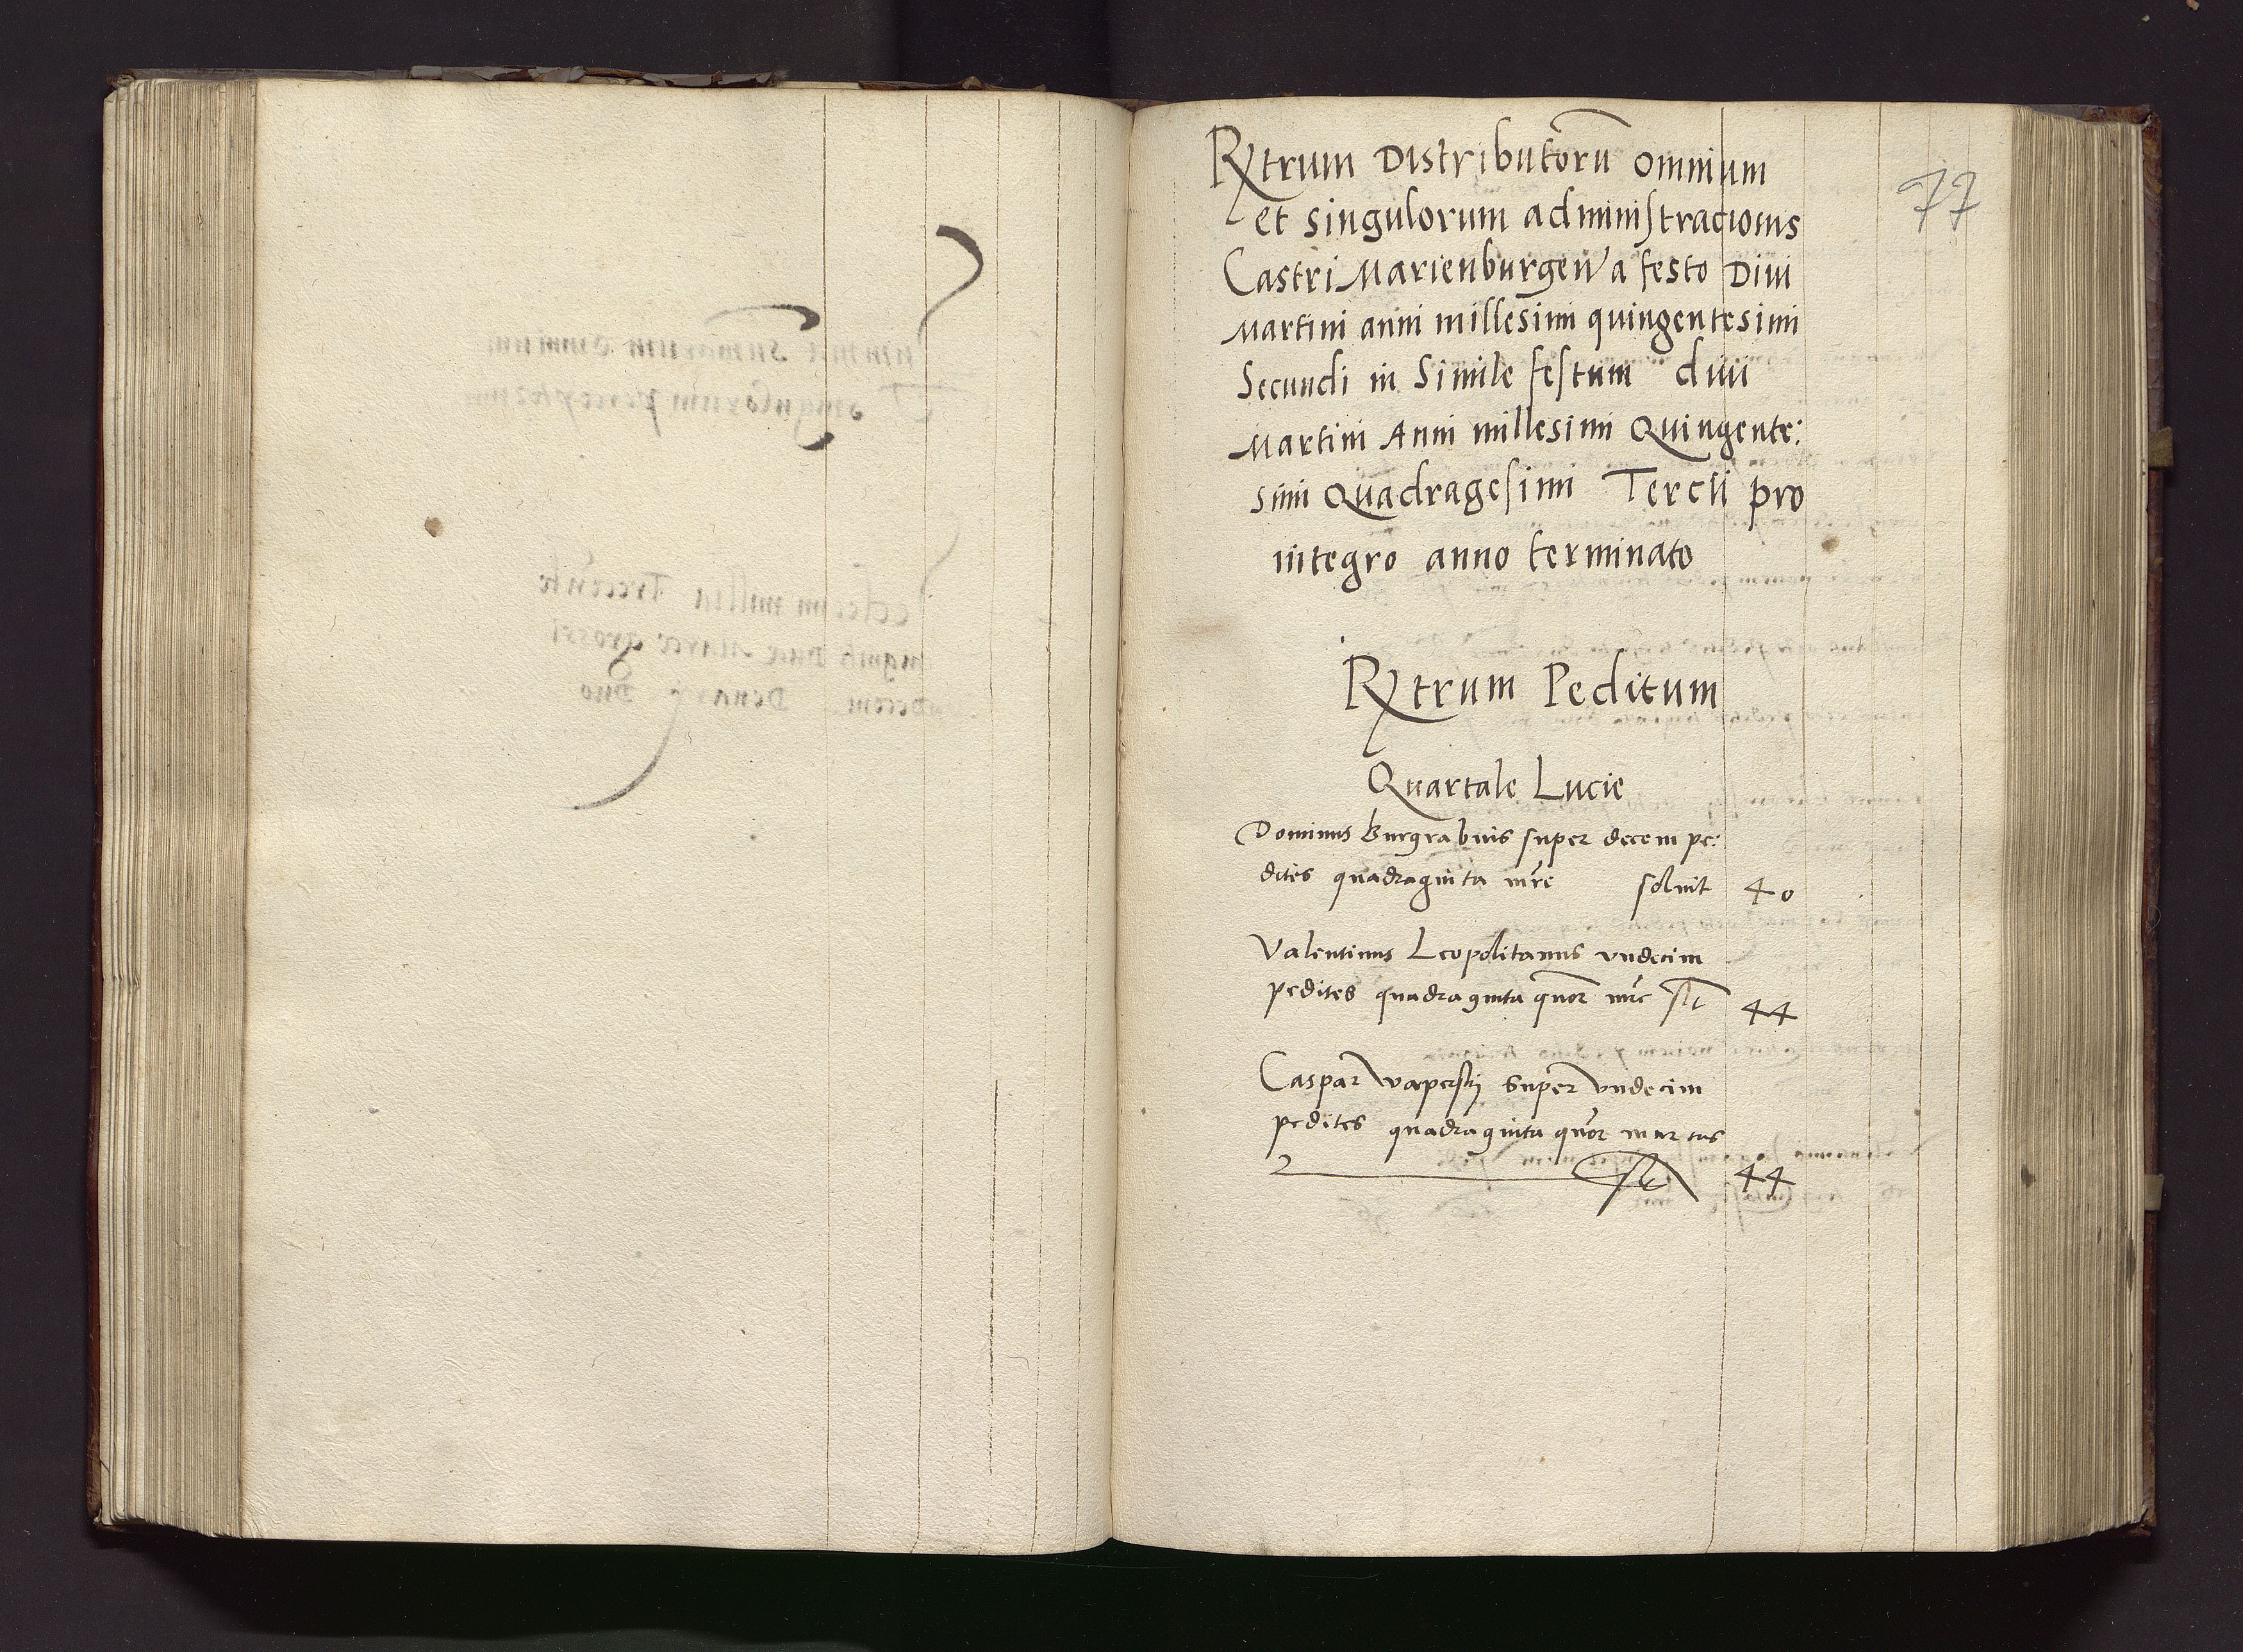 Rxtrum Distributorū omnium
et singulorum administracionis
Castri Marienburgen̄ a festo Divi
Martini anni millesimi quingentesimi
Secundi in Simile festum divi
Martini Anni millesimi Quingente:
simi Quadragesimi Tercii pro
integro anno terminato
77
Rxtrum Peditum
Quartale Lucie
Dominus Burgrabius super decem pe:
dites quadraginta mrc soluit 40
Valentinus Leopolitanus vndecim
pedites quadraginta quor mrc slt 44
Caspar Super vndecim
pedites quadraginta quor marcas
slt 44